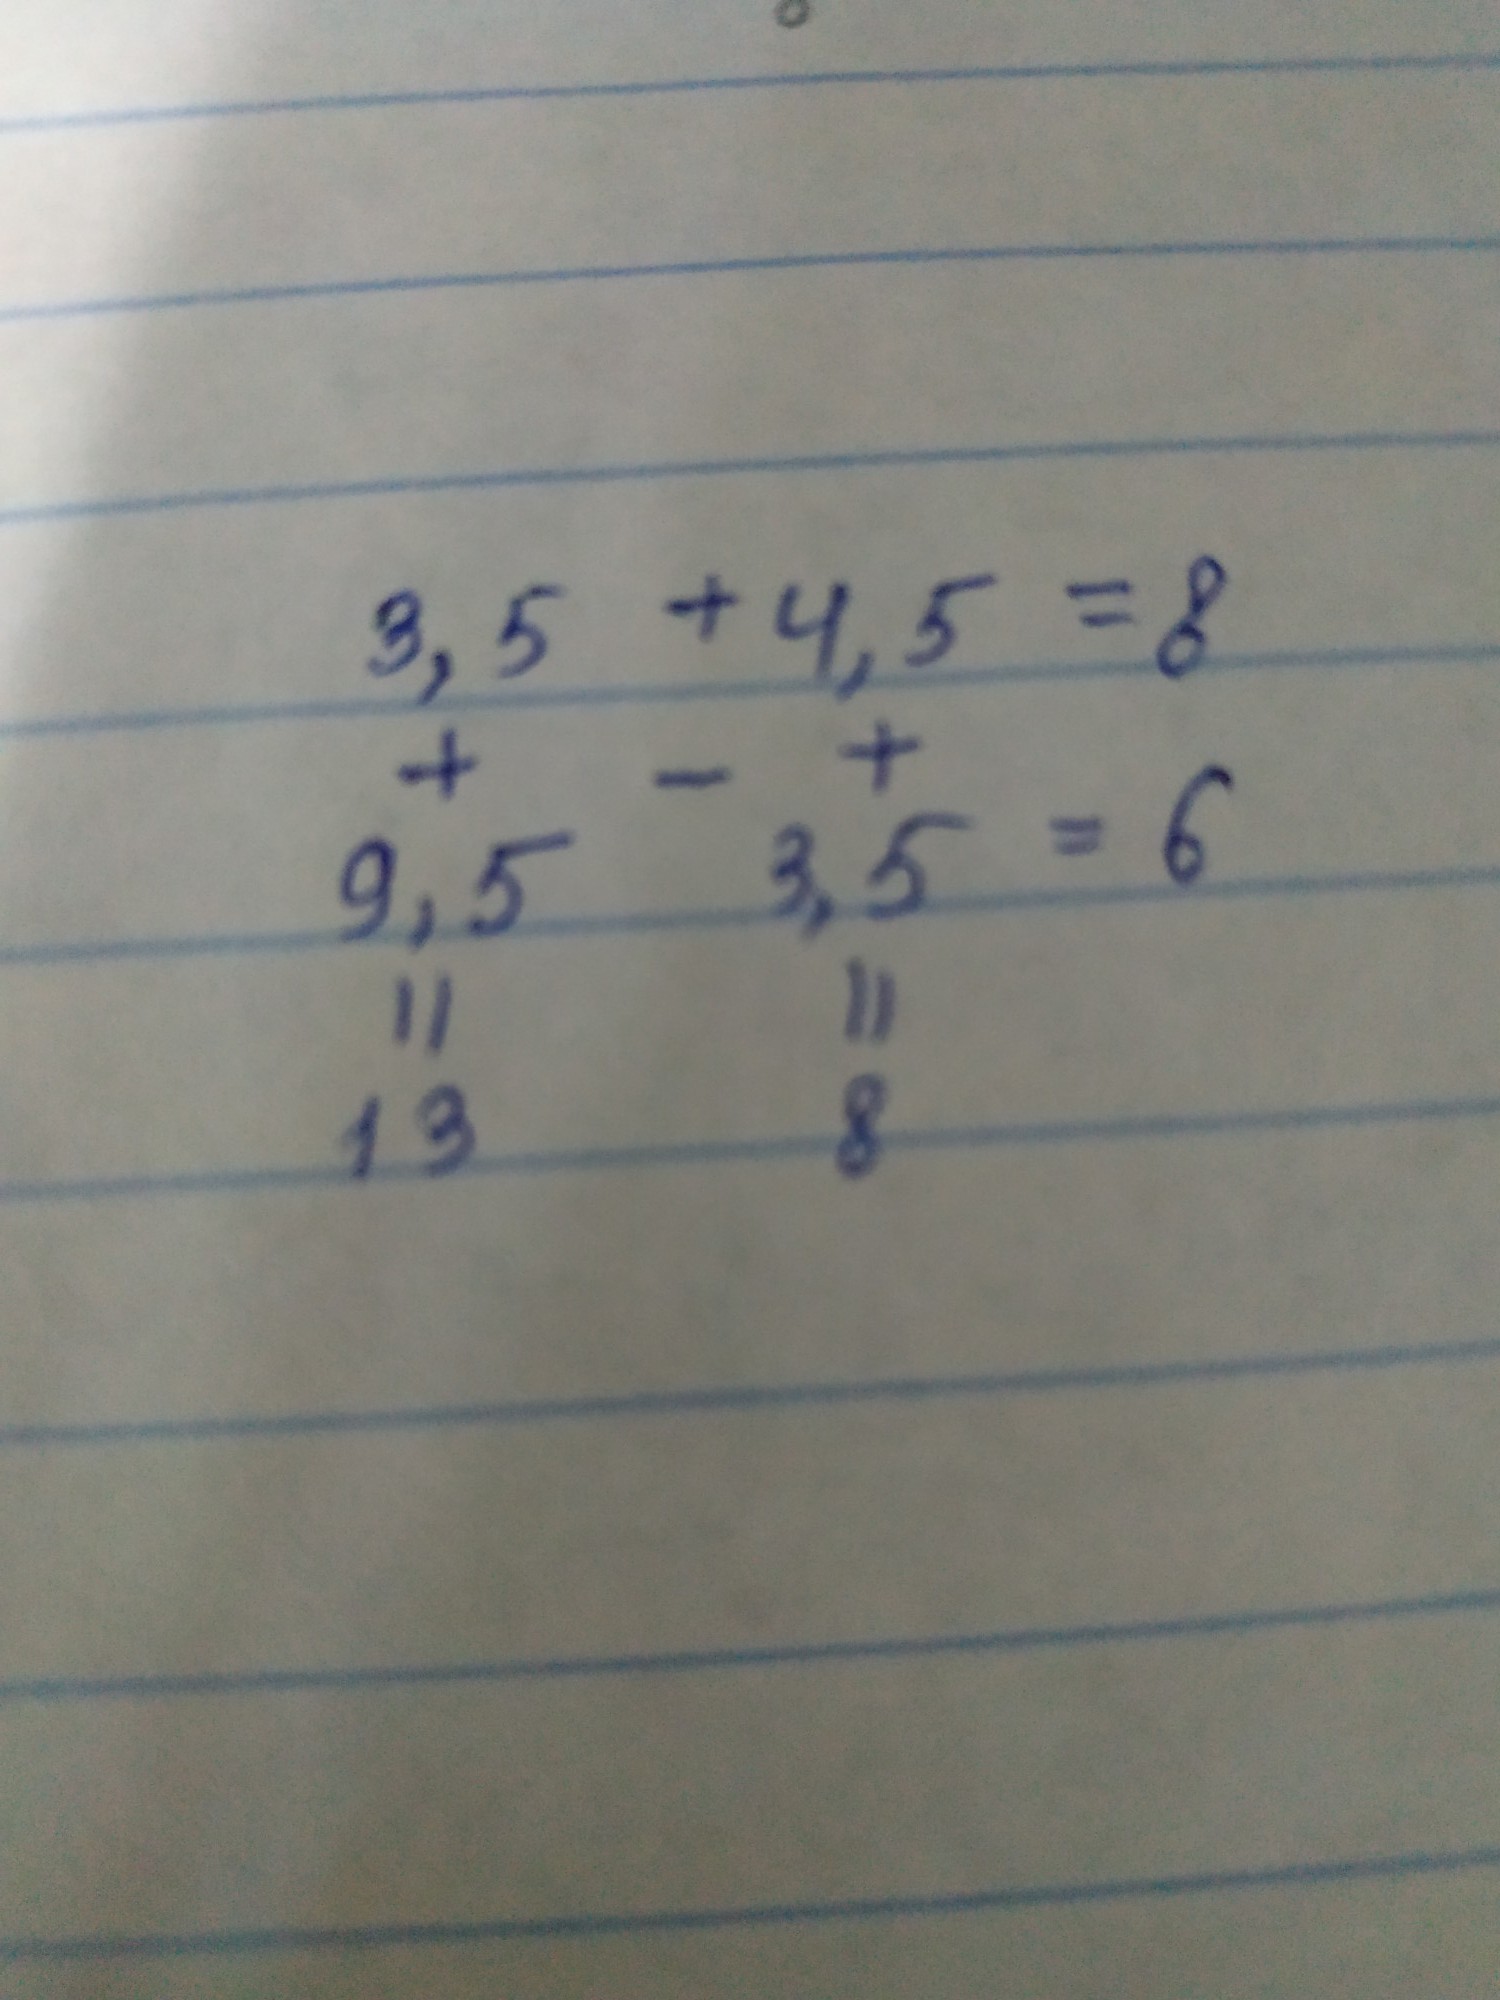 3,5 + 4,5 = 8
+ - +
9,5 3,5 = 6
|| ||
13 8